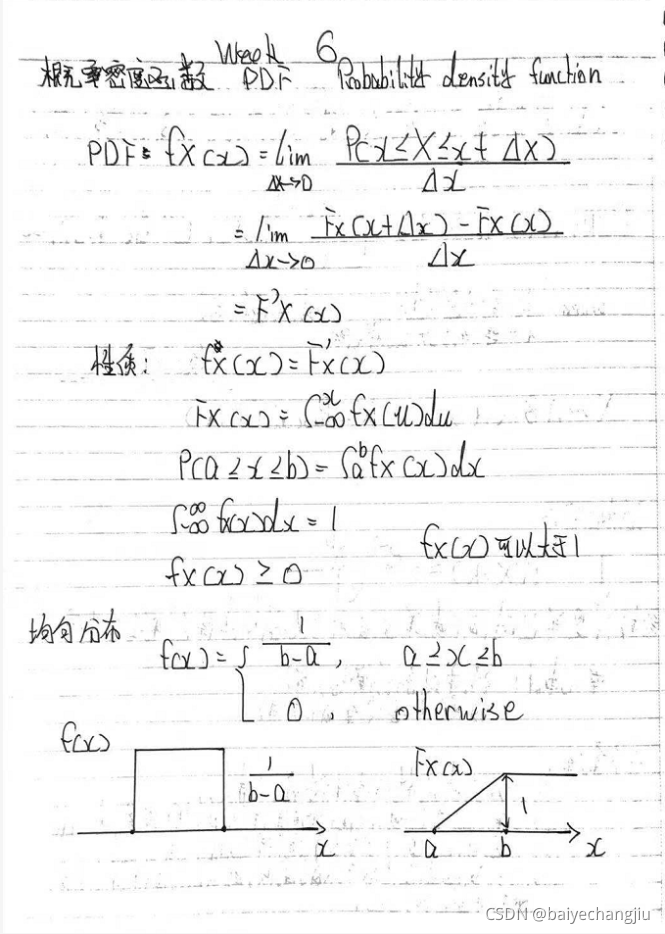 Week 6
概率密度函数 PDF Probability density function
PDF: fX(x) = lim Δx→0 P(x≤X≤x+Δx) / Δx
= lim Δx→0 FX(x+Δx) - FX(x) / Δx
= F'X(x)
性质: fX(x) = FX'(x)
FX(x) = ∫-∞^x fX(u)du
P(a≤x≤b) = ∫a^b fX(x)dx
∫-∞^∞ f(x)dx = 1
fX(x)可以大于1
fX(x) ≥ 0
均匀分布
f(x) = { 1/(b-a), a≤x≤b
0, otherwise
f(x)
1/(b-a)
x
FX(x)
1
a b x
CSDN @baiyechangjiu